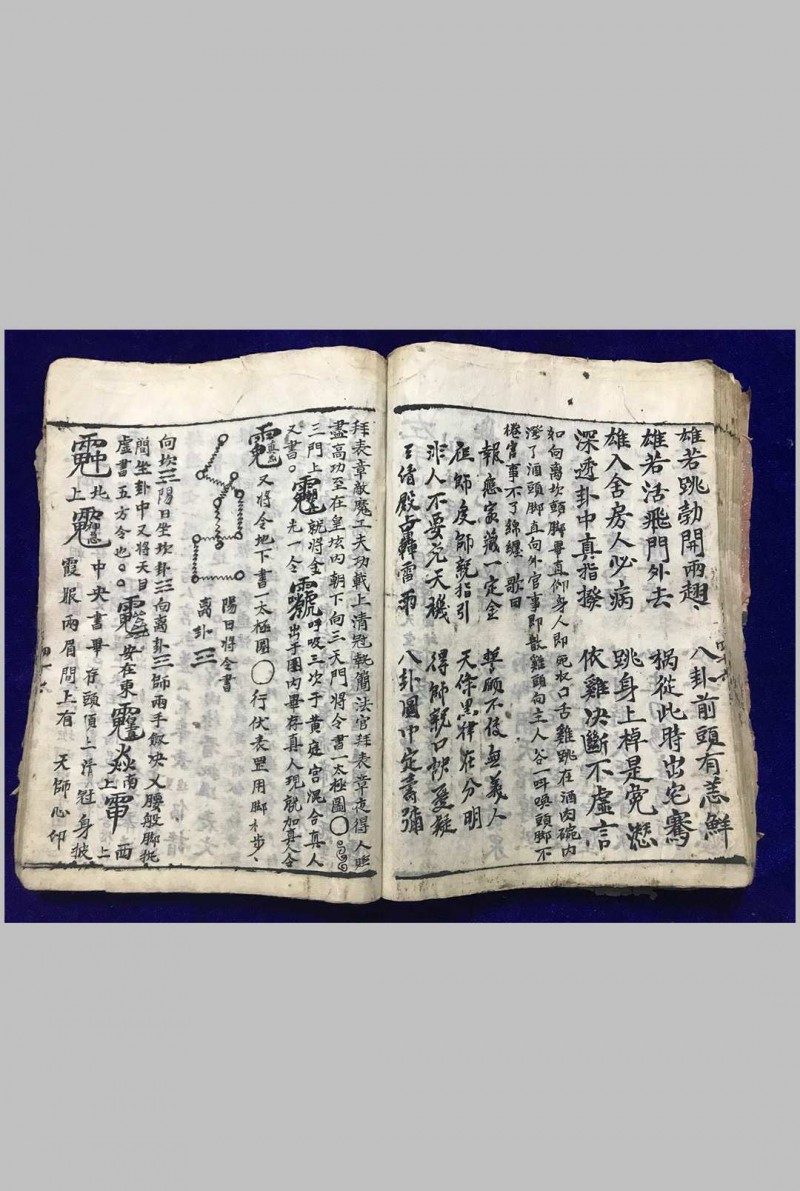 雄若跳勃開兩翅 八卦前頭有恙鮮
雄若活飛門外去 禍從此時出宅騫
雄入舍房人必病 跳身上棹是冤愆
深透卦中真指撥 依雞决斷不虛言
如向离坎頭脚畢直仰身人即死水口舌雞跳在酒肉碗内
灣了酒頭脚直向外官事即散雞頭向主人谷一叫喚頭脚不
捲官事不了綿纏 歌曰
報應家藏一定金 誓願不伝無義人
祖師度師親指引 天條黑律在分明
非人不要兄天機 得師親口 
王借殿占轟雷雨 八卦圖中定壽彌
拜表章敵魔工夫功戴上清冠執簡法官拜表章度得人熙
盡高功至在皇坛内朝下向三天門將令書一太極圖〇
三門上 就將金 呼吸三次于黄庭宫混合真人
又書。 先一令 出手圈内畢存真人現就加真人合
又將令地下書一太極圖〇行伏表罡用脚木步、
陽日將令書
离卦三
向坎三陽日坐坎卦三向离卦三師兩手叙块乂腰般脚挑
間坐卦中又將天目
虛書五方令也。。 安在東 南上 西上
北上 中央書畢存頭頂上清冠身披
霞服兩眉間上有 天師心印